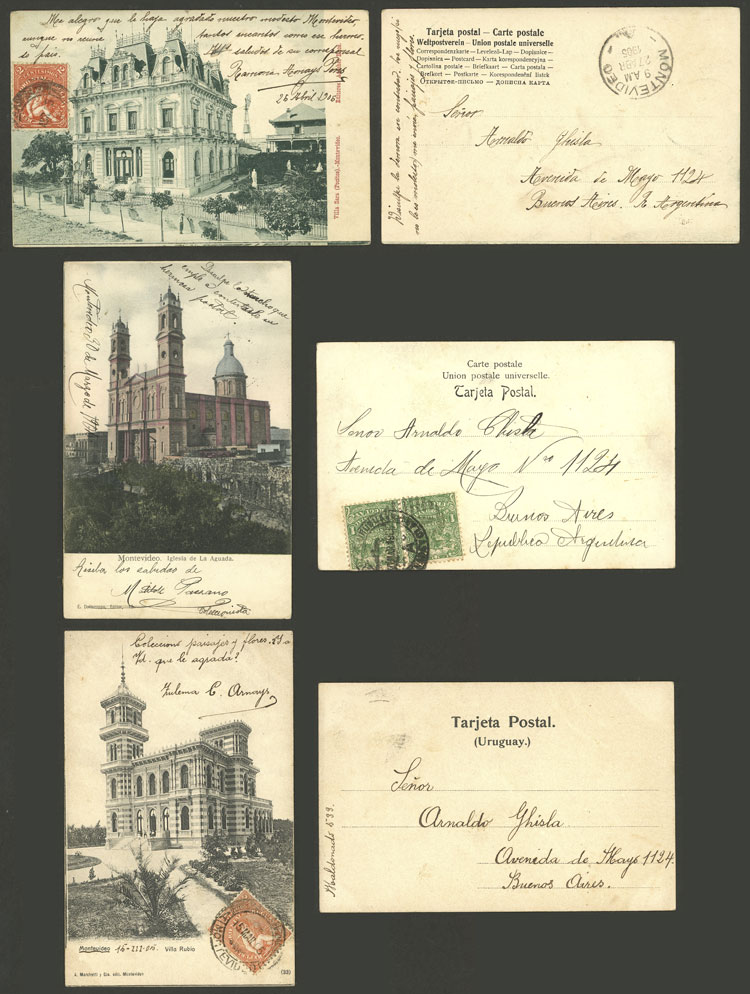 Me alegro que le haya agradado nuestro modesto Montevideo,
aunque no reune tantos encantos como ese hermo-
so pais.
saludos de su corresponsal
Ramona Arnays
26 Abril 1906
Villa Sara (Pocitos).-Montevideo.
Tarjeta postal – Carte postale
Weltpostverein – Union postale universelle
Correspondenzkarte – Levelezö-Lap – Dopisnice –
Dopisnica – Postcard – Karta korespondencyjna –
Cartolina postale – Briefkaart – Carta postala –
Brefkort – Postkarte – Korespondenčni listek
Открытое-письмо – Дописна карта
MONTEVIDEO
9 AM
27 ABR
1906
Señor
Arnaldo Ghisla
Avenida de Mayo 1124
Buenos Aires. R. Argentina
Disculpe la
hermosa postal.
Montevideo 30 de Marzo de
Montevideo. Iglesia de La Aguada.
Reciba los saludos de
Coleccionista
Carte postale
Union postale universelle.
Tarjeta Postal.
Senor Arnaldo Ghisla
Avenida de Mayo Nro 1124
Buenos Aires
Republica Argentina
Colecciono paisajes y flores. ¿Y a
Vd. que le agrada?
Zulema C. Arnays
Montevideo 15-III-06. Villa Rubio
A. Marchetti y Cia. edit. Montevideo
(33)
Tarjeta Postal.
(Uruguay.)
Señor
Arnaldo Ghisla
Avenida de Mayo 1124.
Buenos Aires.
Maldonado 599